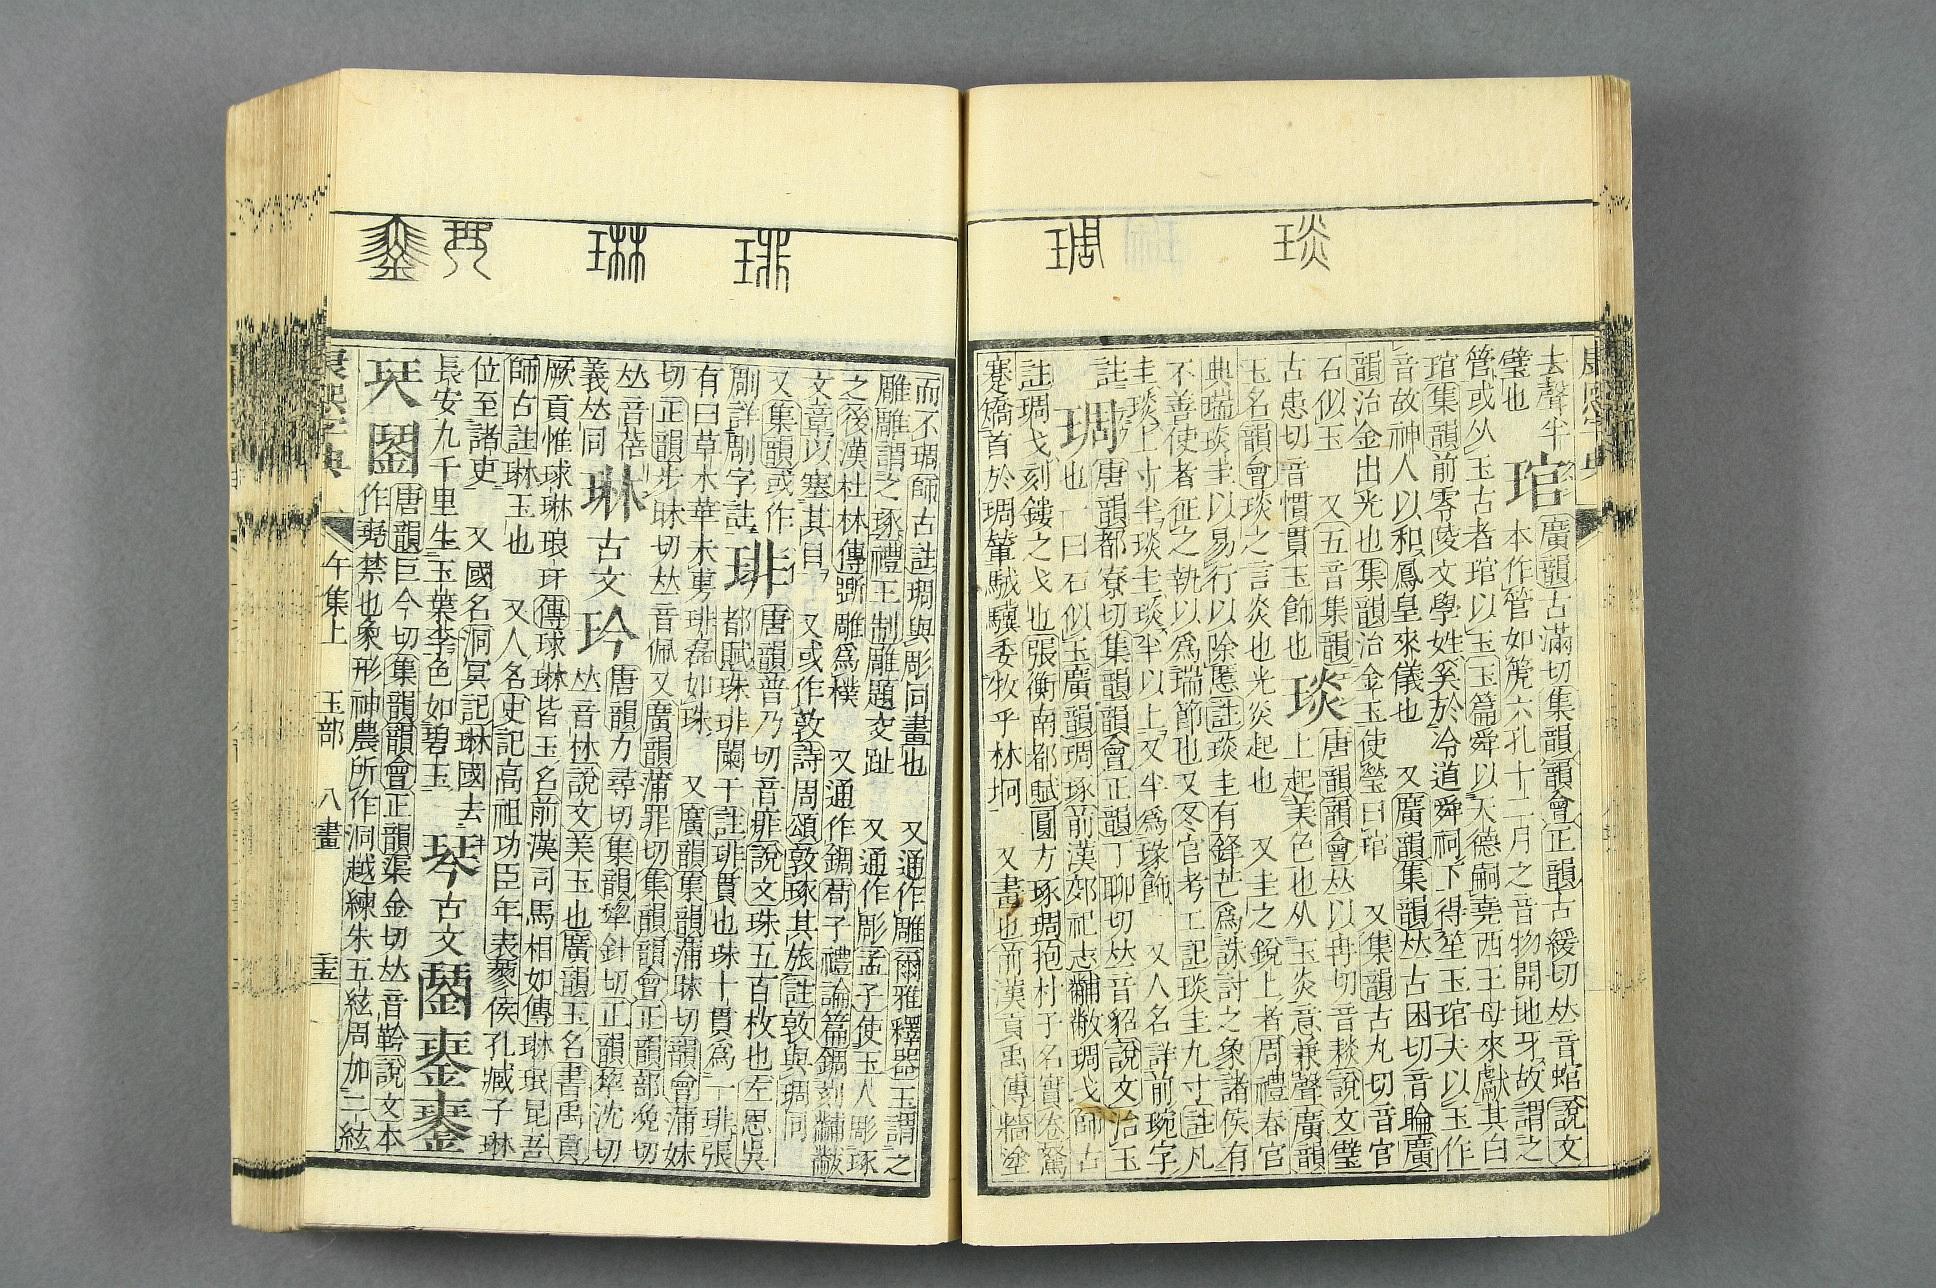 康熙字典
去聲半
璧也
琯
廣韻古滿切集韻韻會正韻古緩切𠀤音輨說文
本作管如箎六孔十二月之音物開地牙故謂之
管或从玉古者琯以玉玉篇舜以天德嗣堯西王母來獻其白
琯集韻前零陵文學姓奚於泠道舜祠下得笙玉琯夫以玉作
音故神人以和鳳皇來儀也 又廣韻集韻𠀤古困切音睔廣
韻治金出光也集韻治金玉使瑩曰琯 又集韻古丸切音官
石似玉 又五音集韻
古患切音慣貫玉飾也
琰
唐韻韻會𠀤以冉切音剡說文璧
上起美色也从玉炎意兼聲廣韻
玉名韻會琰之言炎也光炎起也 又圭之銳上者周禮春官
典瑞琰圭以易行以除慝註琰圭有鋒芒爲誅討之象諸侯有
不善使者征之執以爲瑞節也又冬官考工記琰圭九寸註凡
圭琰上寸半琰圭琰半以上又半爲瑑飾 又人名詳前琬字
註
琱
唐韻都寮切集韻韻會正韻丁聊切𠀤音貂說文治玉
也一曰石似玉廣韻琱琢前漢郊祀志黼黻琱戈師古
註琱戈刻鏤之戈也張衡南都賦圓方琢琱抱朴子名實卷駑
蹇矯首於琱輦駥驥委牧乎林坰 又畫也前漢貢禹傳牆塗
而不琱師古註琱與彫同畫也 又通作雕爾雅釋器玉謂之
雕雕謂之琢禮王制雕題交趾 又通作彫孟子使玉人彫琢
之後漢杜林傳斲雕爲樸 又通作錭荀子禮論篇錭刻黼黻
文章以塞其目 又或作敦詩周頌敦琢其旅註敦與琱同
又集韻或作
詳字註
琲
唐韻普乃切音說文珠五百枚也左思吳
都賦珠琲闌干註琲貫也珠十貫爲一琲張
有曰草木華未琲磊如珠 又廣韻集韻蒲昧切韻會蒲妹
切正韻步昧切𠀤音佩又廣韻蒲罪切集韻韻會正韻部浼切
𠀤音蓓
義𠀤同
琳
古文
玪
唐韻力尋切集韻犂針切正韻犂沈切
𠀤音林說文美玉也廣韻玉名書禹貢
厥貢惟球琳琅玕傳球琳皆玉名前漢司馬相如傳琳珉昆吾
師古註琳玉也 又人名史記高祖功臣年表蓼侯孔臧子琳
位至諸吏 又國名洞冥記琳國去
長安九千里生玉葉李色如碧玉
琴
古文
唐韻巨今切集韻韻會正韻渠金切𠀤音靲說文本
作珡禁也象形神農所作洞越練朱五絃周加二絃
康熙字典 午集上 玉部 八畫